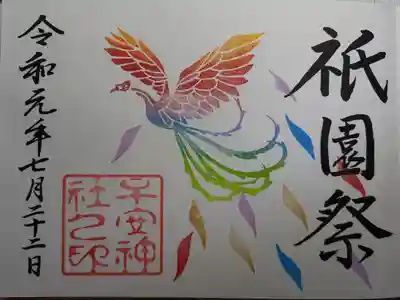 祇園祭
令和元年七月二十二日
子安神
社之印